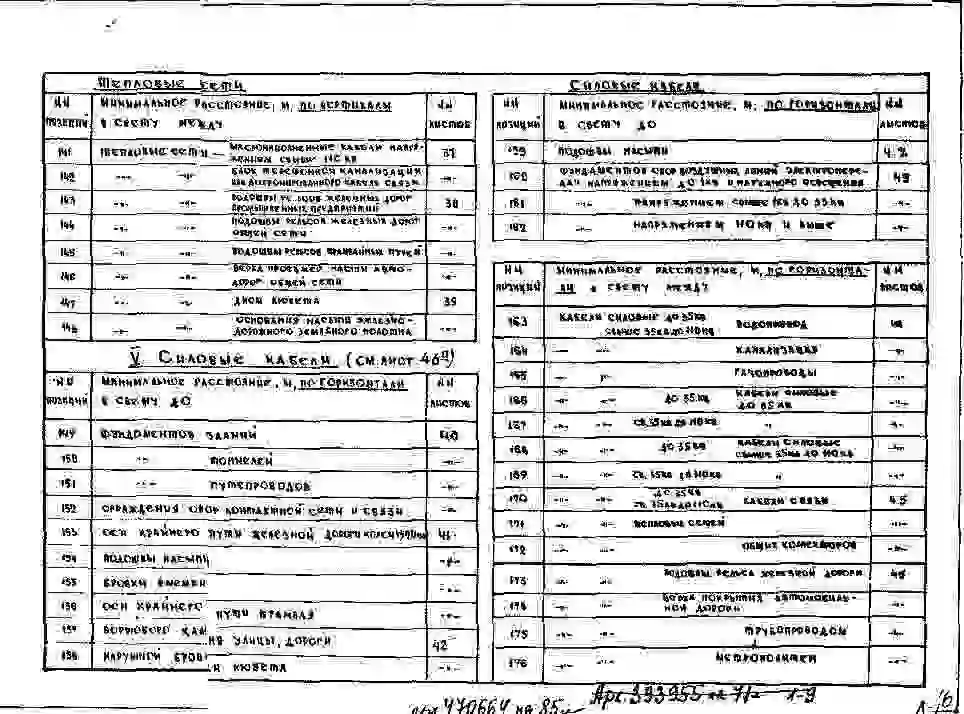 Тепловые сети
НН позиций
Минимальное расстояние, м, по вертикали в свету между
НН листов
141 Тепловые сети — маслонаполненные кабели напряжением свыше 110 кв 37
142 -"- -"- блок телефонной канализации
-"-
143 -"- -"- подошвы рельсов железных дорог промышленных предприятий 38
144 -"- -"- подошвы рельсов железных дорог общей сети -"-
145 -"- -"- подошвы рельсов трамвайных путей -"-
146 -"- -"- верха проезжей части автодорог общей сети -"-
147 -"- -"- дном кювета 39
148 -"- -"- основания насыпи железнодорожного земляного полотна -"-
V Силовые кабели (см. лист 46)
НН позиций
Минимальное расстояние, м, по горизонтали в свету до
НН листов
149 фундаментов зданий 40
150 -"- тоннелей -"-
151 -"- путепроводов -"-
152 ограждения опор контактной сети и связи -"-
153 оси крайнего пути железной дороги колеи 41
154 подошвы насыпи -"-
155 бровки выемки -"-
156 оси крайнего пути трамвая -"-
157 бортового кам улицы, дороги 42
158 наружней бров и кювета -"-
Силовые кабели
НН позиций
Минимальное расстояние, м, по горизонтали в свету до
НН листов
159 подошвы насыпи 42
160 фундаментов опор воздушных линий электропередач напряжением до 1кв и наружного освещения 43
161 -"- напряжением свыше 1кв до 35кв -"-
162 -"- напряжением 110кв и выше -"-
НН позиций
Минимальное расстояние, м, по горизонтали в свету между
НН листов
163 кабели силовые до 35кв свыше 35кв до 110кв водопровод 44
164 -"- -"- канализация -"-
165 -"- -"- газопроводы -"-
166 -"- -"- до 35кв кабели силовые до 35кв -"-
167 -"- -"- св. 35кв до 110кв -"- -"-
168 -"- -"- до 35кв кабели силовые свыше 35кв до 110кв -"-
169 -"- -"- св. 35кв до 110кв -"- -"-
170 -"- -"- до 35кв св. 35кв до 110кв кабели связи 45
171 -"- -"- тепловых сетей -"-
172 -"- -"- общих коллекторов -"-
173 -"- -"- подошвы рельса железной дороги 46
174 -"- -"- верха покрытия автомобильной дороги -"-
175 -"- -"- трубопроводом -"-
176 -"- -"- -"-
470664 на 85
Арх. 393955 1-9